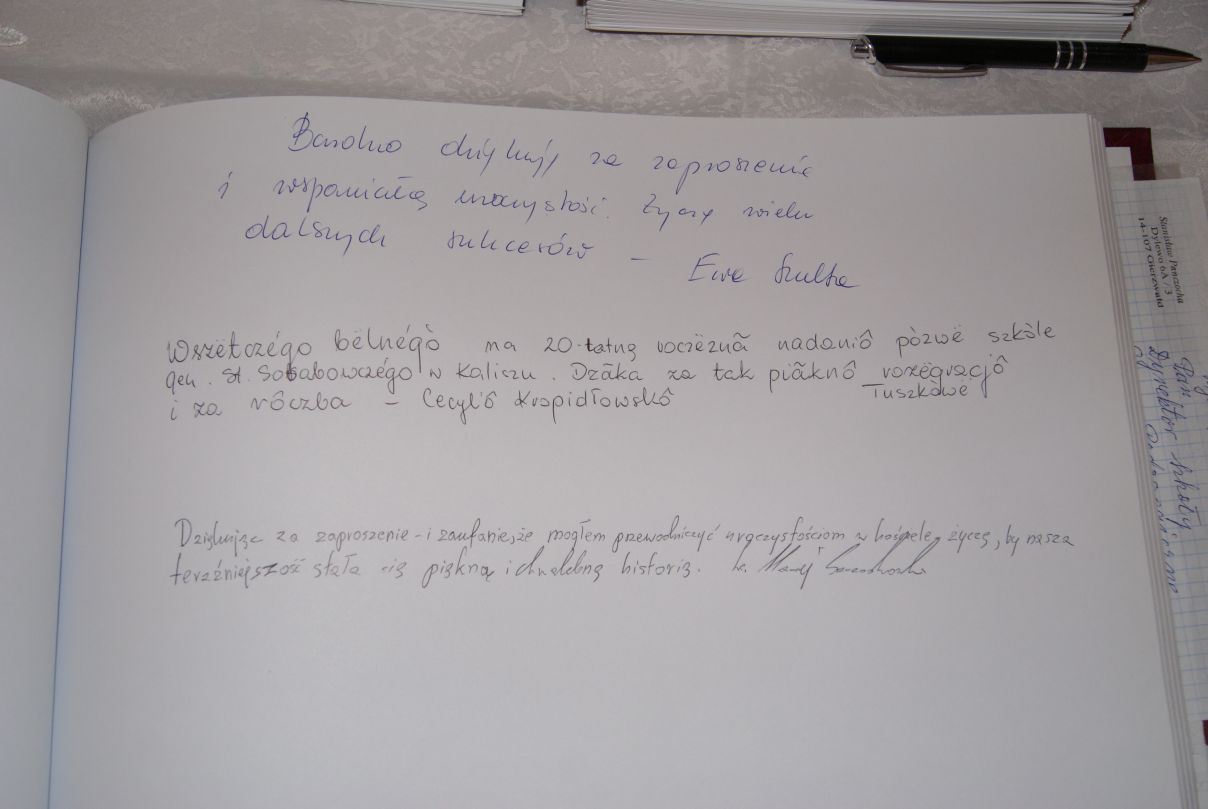 Bardzo dziękuję za zaproszenie
i wspaniałą uroczystość. Życzę wielu
dalszych sukcesów –
Ewa Szulta
Wszëtczégo bëlnégò na 20-tatną roczëznã nadaniô pòzwë szkòle
gen. St. Sobabowczégo w Kaliszu. Dzãka za tak piãknô rozëgracjô
i za rôczba – Cecyliô Kropidłowskô
Tuszkòwë
Dziękując za zaproszenie - i zaufanie, że mogłem przewodniczyć uroczystościom w kościele, życzę, by nasza
teraźniejszość stała się piękną i chwalebną historią. ks.
Stanisław Punczocha
Dylewo 6A / 3
14-107 Gierzwałd
Pan
Dyrektor Szkoły